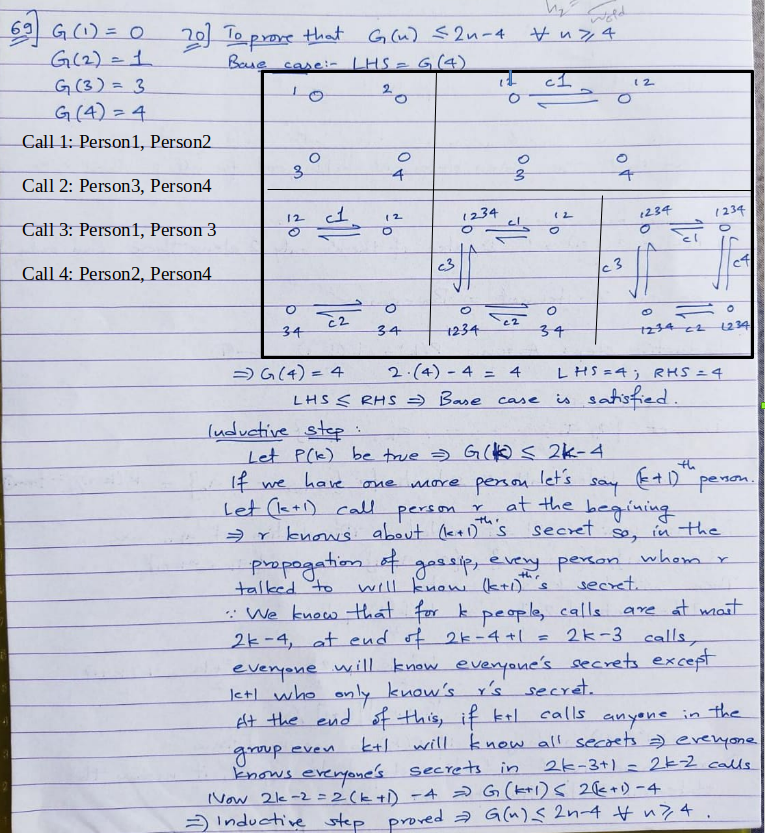 69] G(1) = 0
G(2) = 1
G(3) = 3
G(4) = 4
Call 1: Person1, Person2
Call 2: Person3, Person4
Call 3: Person1, Person 3
Call 4: Person2, Person4
70] To prove that G(n) ≤ 2n-4 ∀ n ≥ 4
Base case:- LHS = G(4)
1 2
3 4
12 c1 12
3 4
12 c1 12
34 c2 34
1234 c1 12
c3
1234 c2 34
1234 c1 1234
c3 c4
1234 c2 1234
⇒ G(4) = 4 2·(4) - 4 = 4 LHS = 4; RHS = 4
LHS ≤ RHS ⇒ Base case is satisfied.
Inductive step :
Let P(k) be true ⇒ G(k) ≤ 2k-4
If we have one more person let's say (k+1)th person.
Let (k+1) call person r at the begining
⇒ r knows about (k+1)th's secret so, in the
propogation of gossip, every person whom r
talked to will know (k+1)th's secret.
∵ We know that for k people, calls are at most
2k-4, at end of 2k-4+1 = 2k-3 calls,
everyone will know everyone's secrets except
k+1 who only know's r's secret.
At the end of this, if k+1 calls anyone in the
group even k+1 will know all secrets ⇒ everyone
knows everyone's secrets in 2k-3+1 = 2k-2 calls
Now 2k-2 = 2(k+1) - 4 ⇒ G(k+1) ≤ 2(k+1) - 4
⇒ Inductive step proved ⇒ G(n) ≤ 2n-4 ∀ n ≥ 4 .